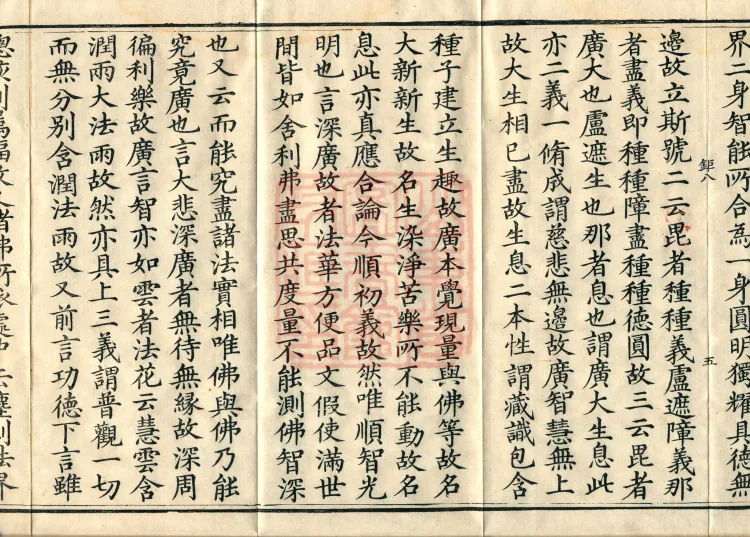 界二身智能所合為一身圓明獨耀具德無
鉅八
五
邉故立斯號二云毘者種種義盧遮障義那
者盡義即種種障盡種種德圓故三云毘者
廣大也盧遮生也那者息也謂廣大生息此
亦二義一脩成謂慈悲無邉故廣智慧無上
故大生相已盡故生息二本性謂藏識包含
種子建立生趣故廣本覺現量與佛等故名
大新新生故名生染淨苦樂所不能動故名
息此亦真應合論今順初義故然唯順智光
明也言深廣故者法華方便品文假使滿世
間皆如舍利弗盡思共度量不能測佛智深
也又云而能究盡諸法實相唯佛與佛乃能
究竟廣也言大悲深廣者無待無緣故深周
徧利樂故廣言智亦如雲者法花云慧雲含
潤雨大法雨故然亦具上三義謂普觀一切
而無分別含潤法雨故又前言功德下言雖